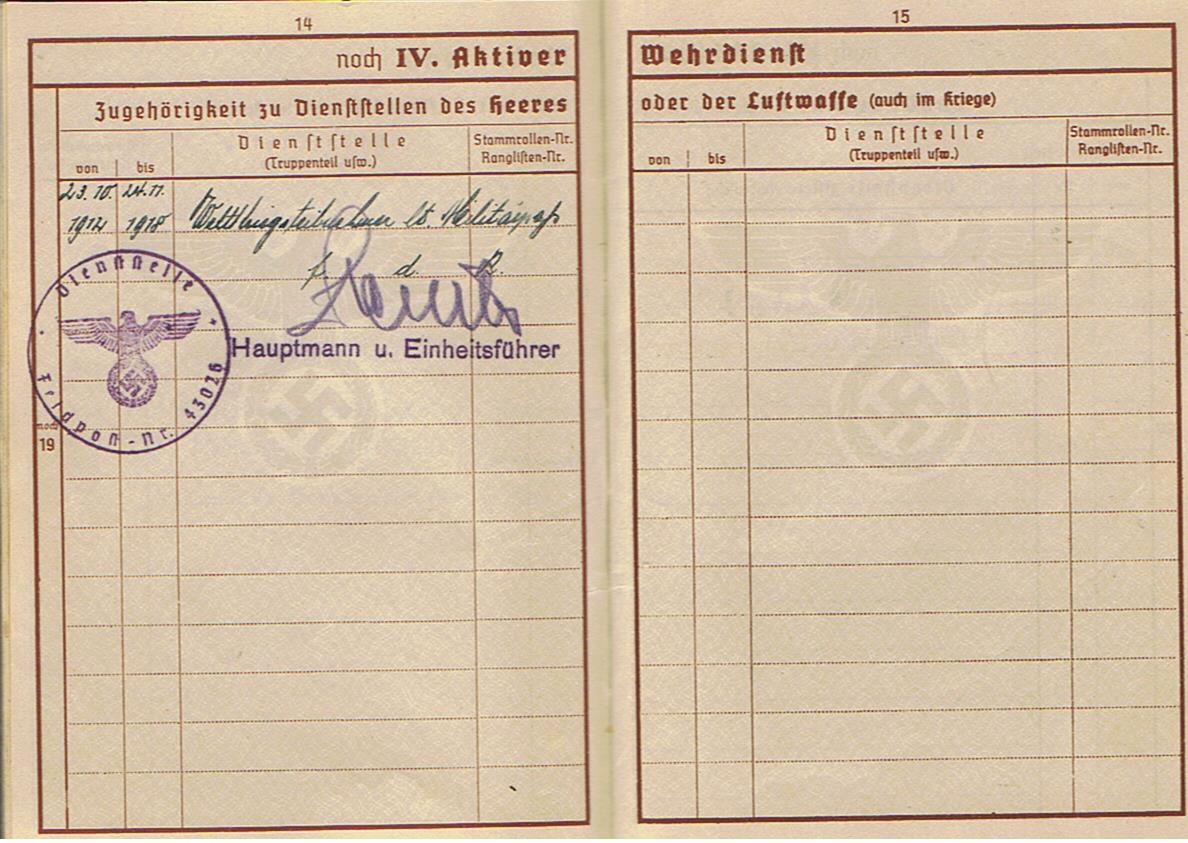 14
noch IV. Aktiver
Zugehörigkeit zu Dienststellen des Heeres
von
bis
Dienststelle
(Truppenteil usw.)
Stammrollen-Nr.
Ranglisten-Nr.
23.10. 24.11.
1914 1918 Weltkriegsteilnehmer lt. Militärpaß
f. d. R.
Hauptmann u. Einheitsführer
Dienststelle
Feldpost-Nr. 43026
noch
19
15
Wehrdienst
oder der Luftwaffe (auch im Kriege)
von
bis
Dienststelle
(Truppenteil usw.)
Stammrollen-Nr.
Ranglisten-Nr.